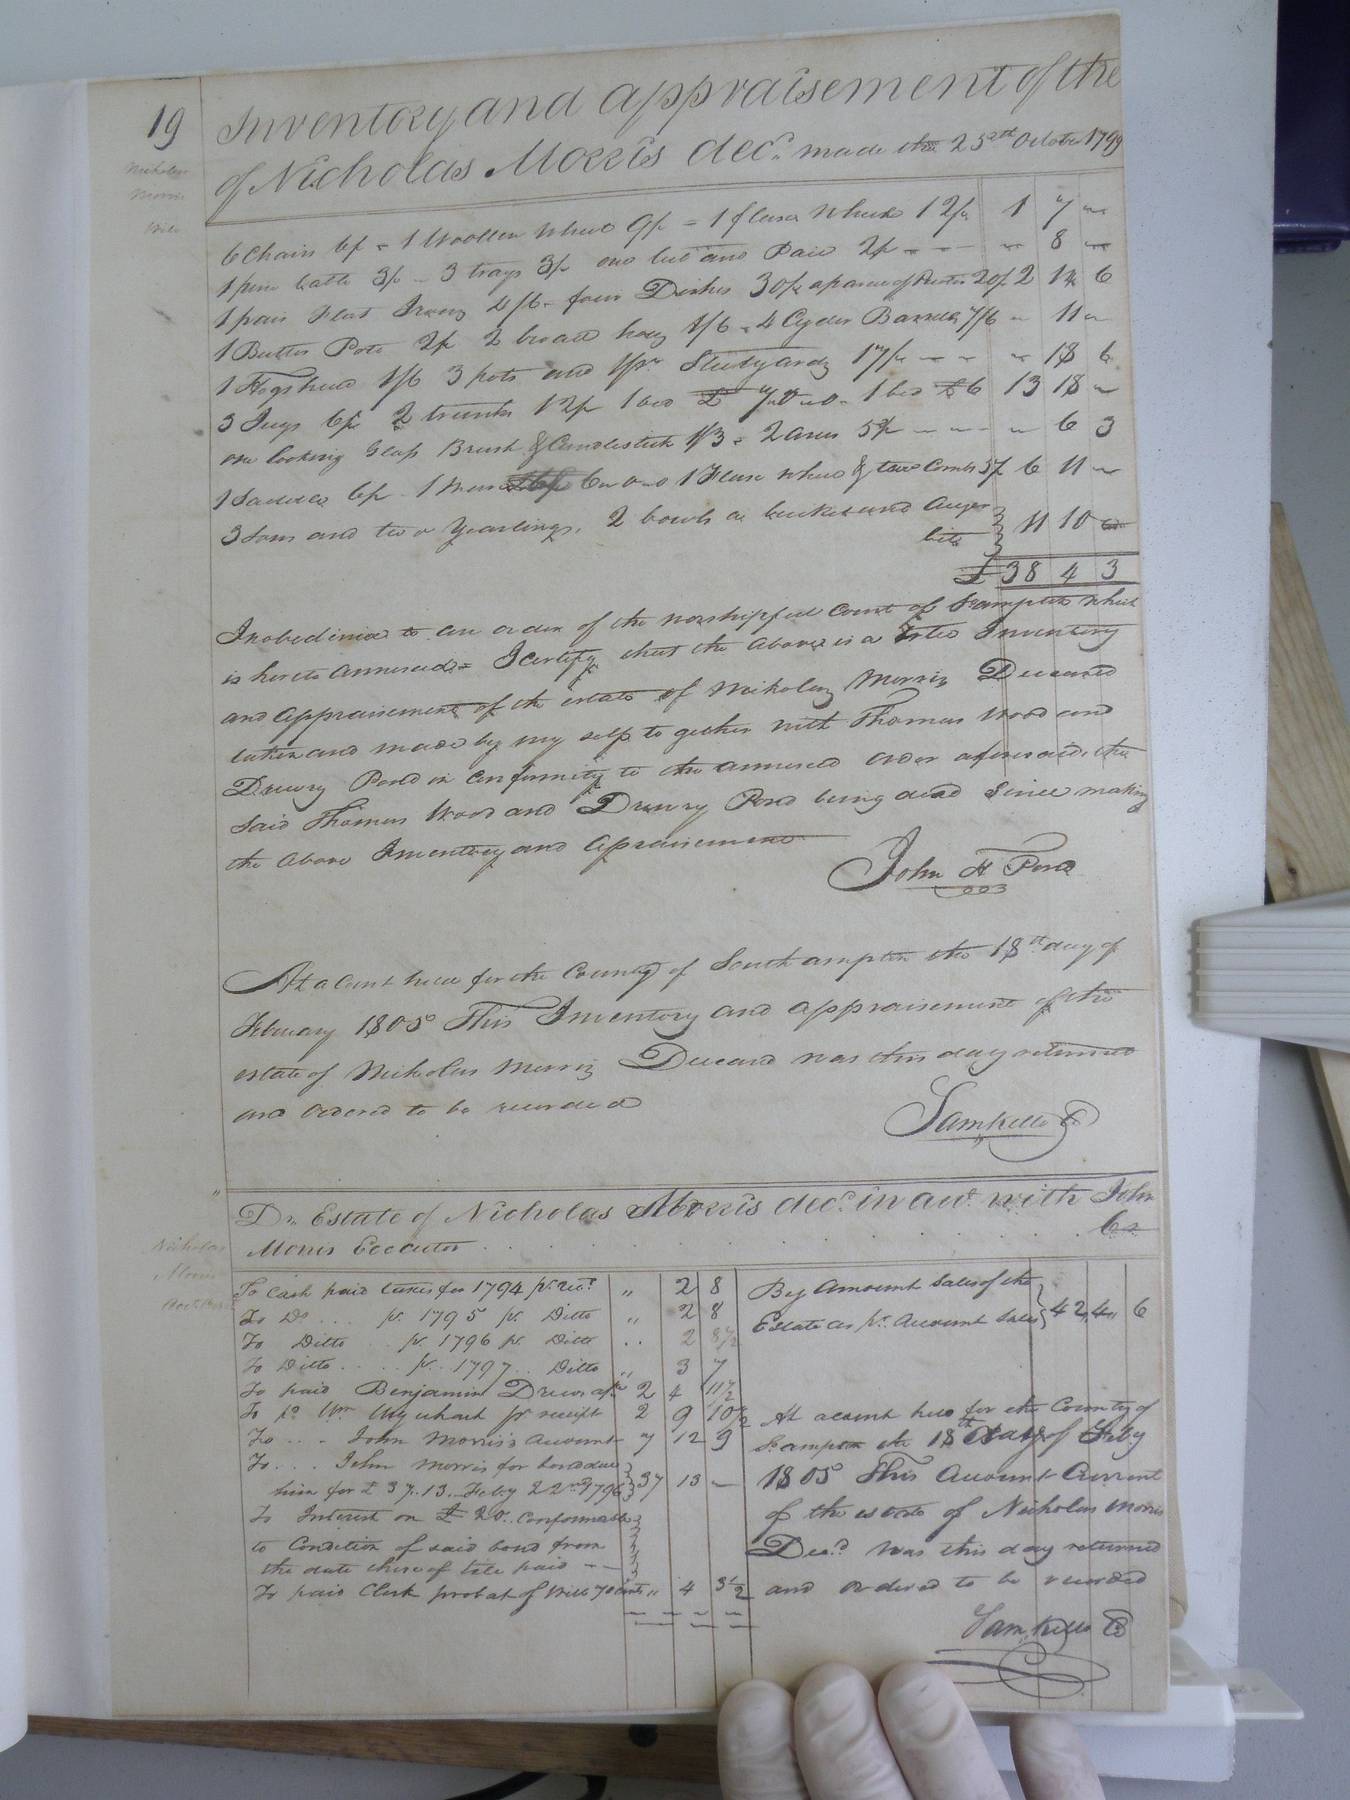 19
Inventory and appraisement of the
of Nicholas Morris decd. made the 25th October 1799
Nicholas
Morris
6 Chairs 6/ = 1 Woollen Wheel 9/ = 1 flaxen Wheel 12/ 1 7 "
3/ - 3 trays 3/ one and Pair 2/ - - - " 8 "
1 pair Flat Irons 4/6 - four Dishes 30/ a parcel of Pewter 20/ 2 14 6
1 Butter Pot 2/ 2 broad hoes 1/6 = 4 Cyder Barrells 7/6 " 11 "
1 Hogshead 1/6 3 pots and 1 pr Steelyards 17/ - - " 18 6
3 Jugs 6/ 2 trunks 12/ 1 bed £ 7,,0,,0 - 1 bed £6 13 18 "
one looking Glass Brush & Candlestick 1/3 = 2 axes 5/ - - - " 6 3
6/ - 1 6,,0,,0 1 Flax wheel & Combs 5/ 6 11 "
3 and two Yearlings, 2 bowls a bucket and Auger
bits 11 10 "
£ 38 4 3
In obedience to an order of the worshipful Court of Southampton which
is hereto annexed = I certify that the above is a true Inventory
and appraisement of the estate of Nicholas Morris Deceased
taken and made by my self to gether with Thomas Wood and
Drewry Pond in conformity to the annexed order aforesaid, the
said Thomas Wood and Drewry Pond being dead since making
the above Inventory and appraisement
John H Pond
At a Court held for the County of Southampton the 18th day of
February 1805 This Inventory and appraisement of the
estate of Nicholas Morris Deceasd was this day returned
and ordered to be recorded
Sam Kello C
Dr. Estate of Nicholas Morris decd. in acct. with John
Morris Executor Cr
Nicholas
Morris
To Cash paid taxes for 1794 pr. rect. " 2 8
To Do pr. 1795 pr. Ditto " 2 8
To Ditto pr. 1796 pr. Ditto " 2 8½
To Ditto pr. 1797 Ditto " 3 7
To paid Benjamin Drew 2 4 11½
To pd. Wm Urquhart pr receipt 2 9 10½
To John Morris's account 7 12 9
To John Morris for bond due
him for £ 37..13.. Feby 22nd 1796 37 13 -
To Interest on £ 20.. conformable
to Condition of said bond from
the date thereof till paid - -
To paid Clerk probat of Will 70 cents " 4 3½
By Amount Sales of the
Estate as pr. account Sales 42 4 6
At a Court held for the County of
Southampton the 18th day of Feby
1805 This Account Current
of the estate of Nicholas Morris
Decd. was this day returned
and ordered to be recorded
Sam Kello C